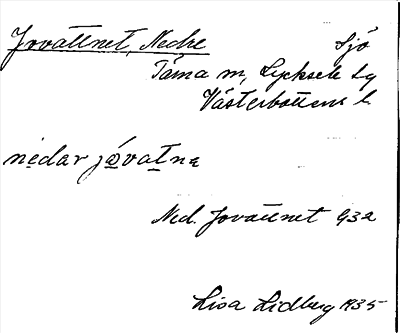 Jovattnet, Nedre Sjö
Tärna sn, Lycksele lg
Västerbottens l.
nedar jåvatnę
Ned. Jovattnet 93a
Lisa Lidberg 1935